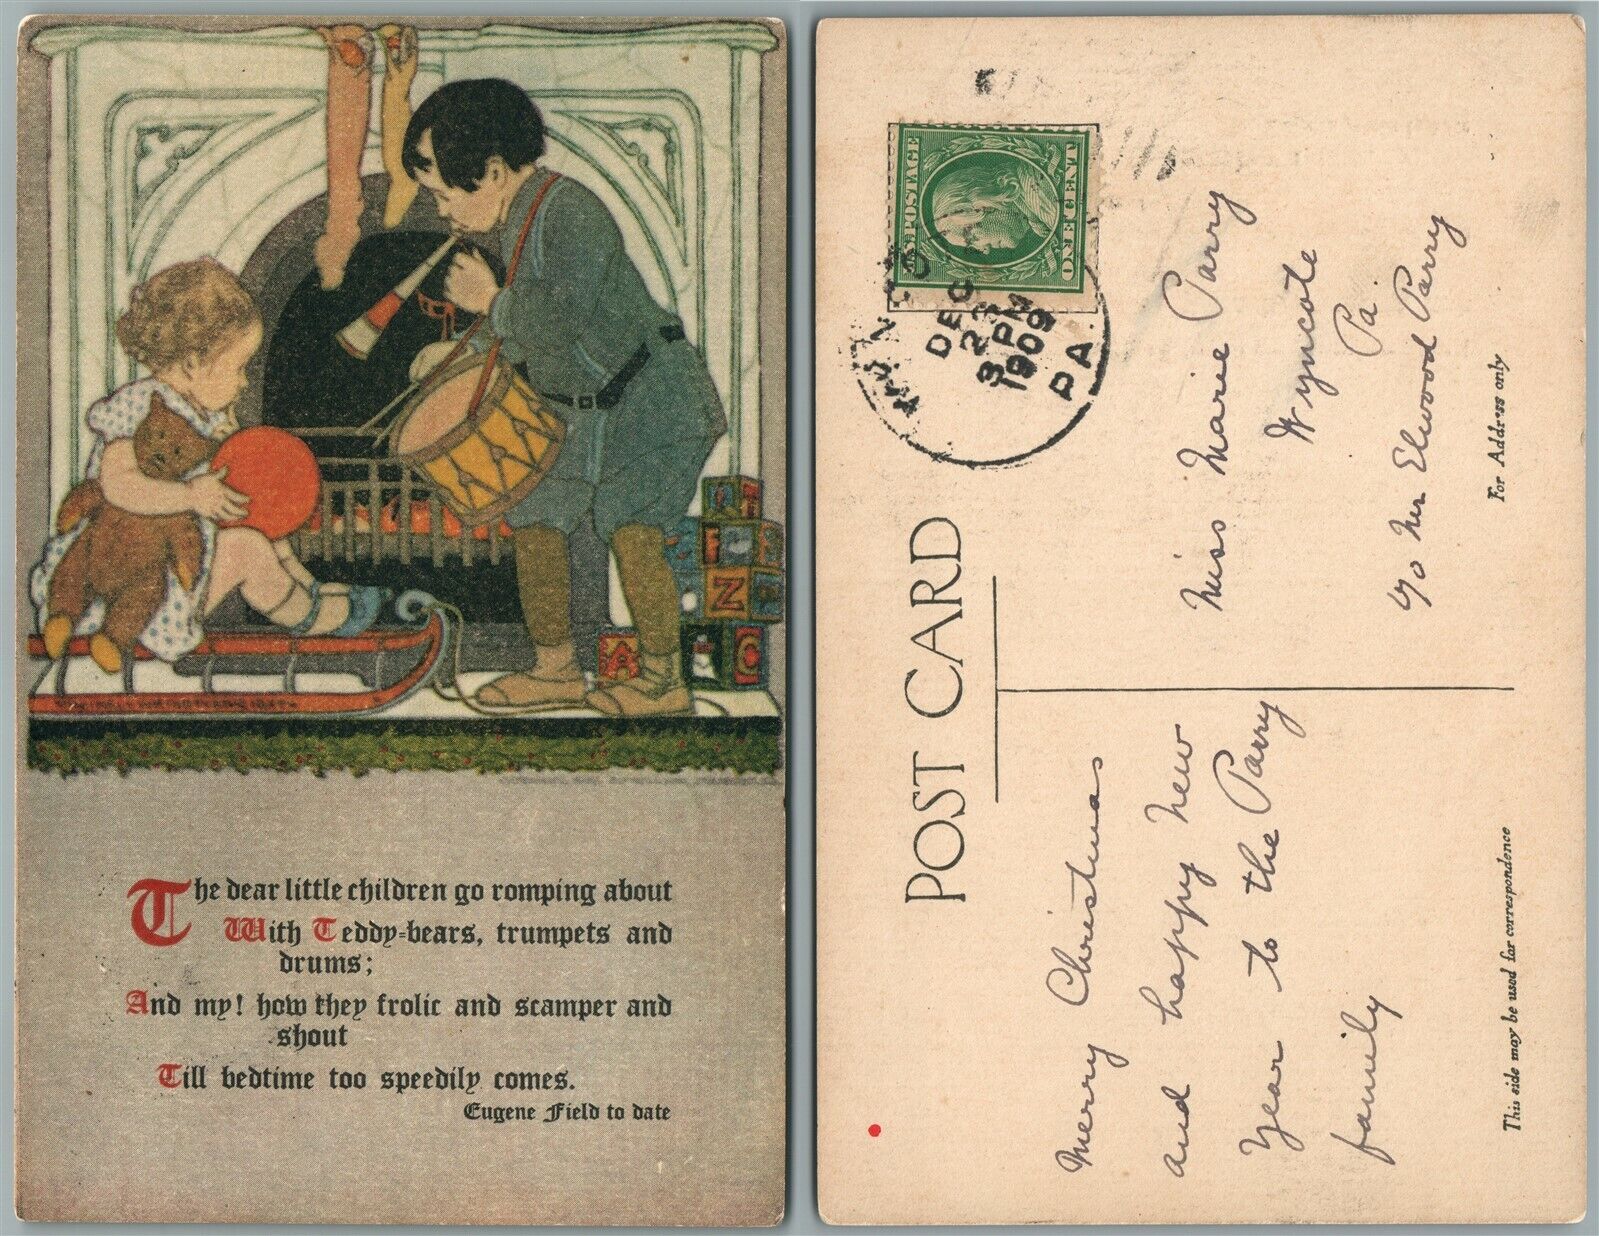 The dear little children go romping about
With Teddy-bears, trumpets and
drums;
And my! how they frolic and scamper and
shout
Till bedtime too speedily comes.
Eugene Field to date
F
Z
A
C
POST CARD
POSTAGE
DEC
23
3 PM
1909
PA.
Miss Marie Parry
Wyncote
Pa.
c/o Mrs Elwood Parry
For Address only
Merry Christmas
and happy New
Year to the Parry
family
This side may be used for correspondence